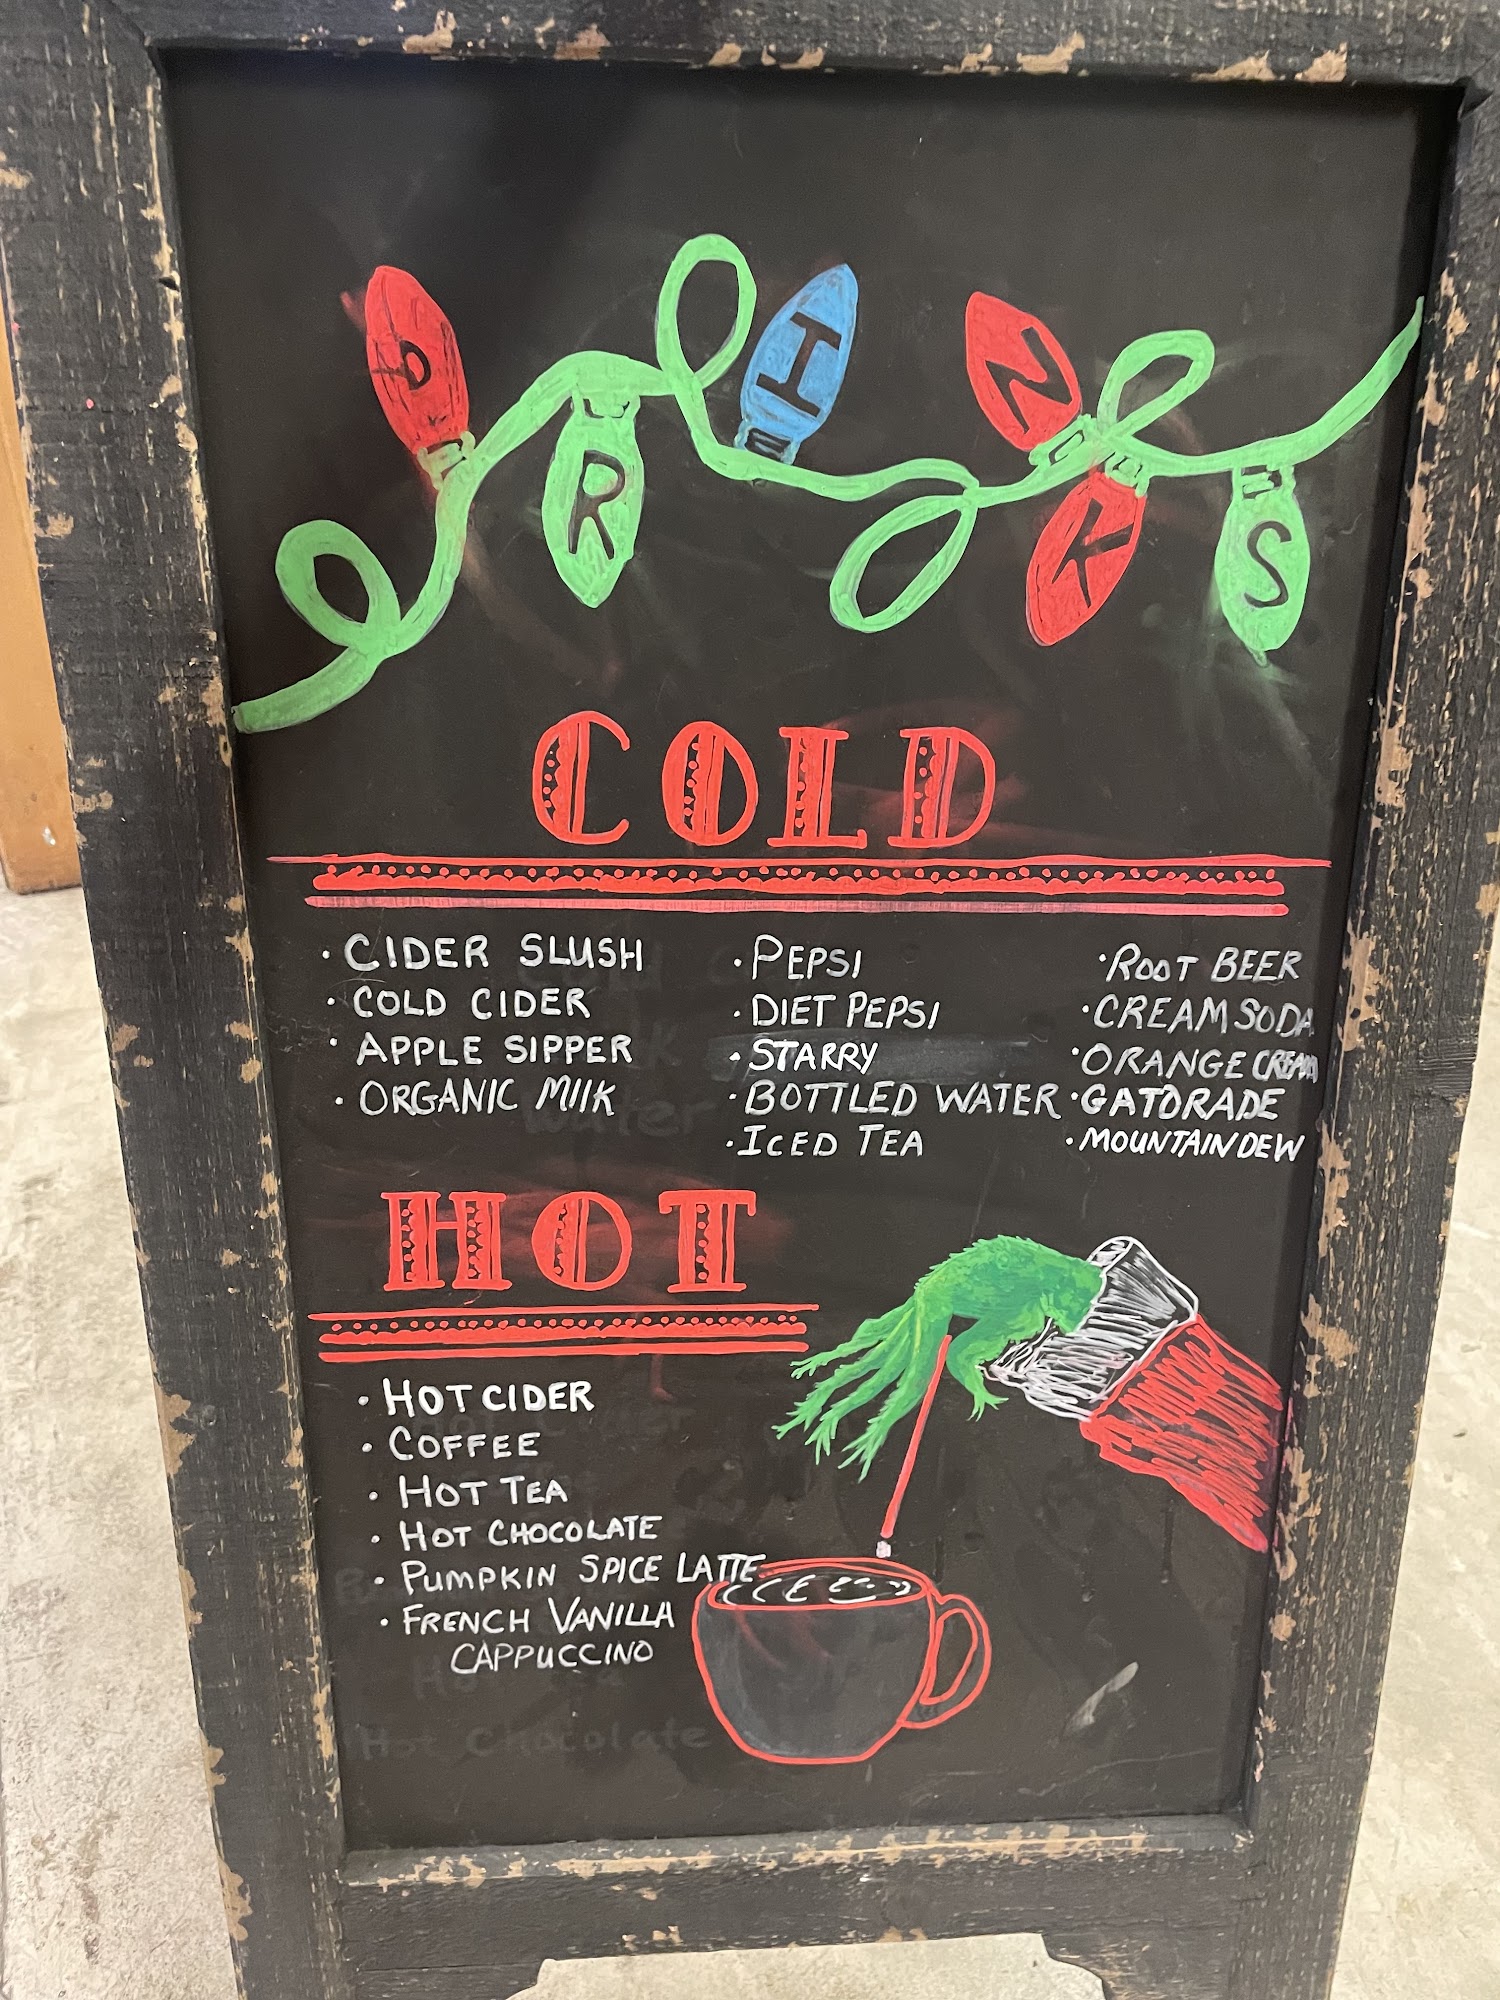 DRINKS
COLD
· CIDER SLUSH
· COLD CIDER
· APPLE SIPPER
· ORGANIC MILK
· PEPSI
· DIET PEPSI
· STARRY
· BOTTLED WATER
· ICED TEA
· ROOT BEER
· CREAM SODA
· ORANGE CREAM
· GATORADE
· MOUNTAIN DEW
HOT
· HOT CIDER
· COFFEE
· HOT TEA
· HOT CHOCOLATE
· PUMPKIN SPICE LATTE
· FRENCH VANILLA
CAPPUCCINO
Hot Chocolate